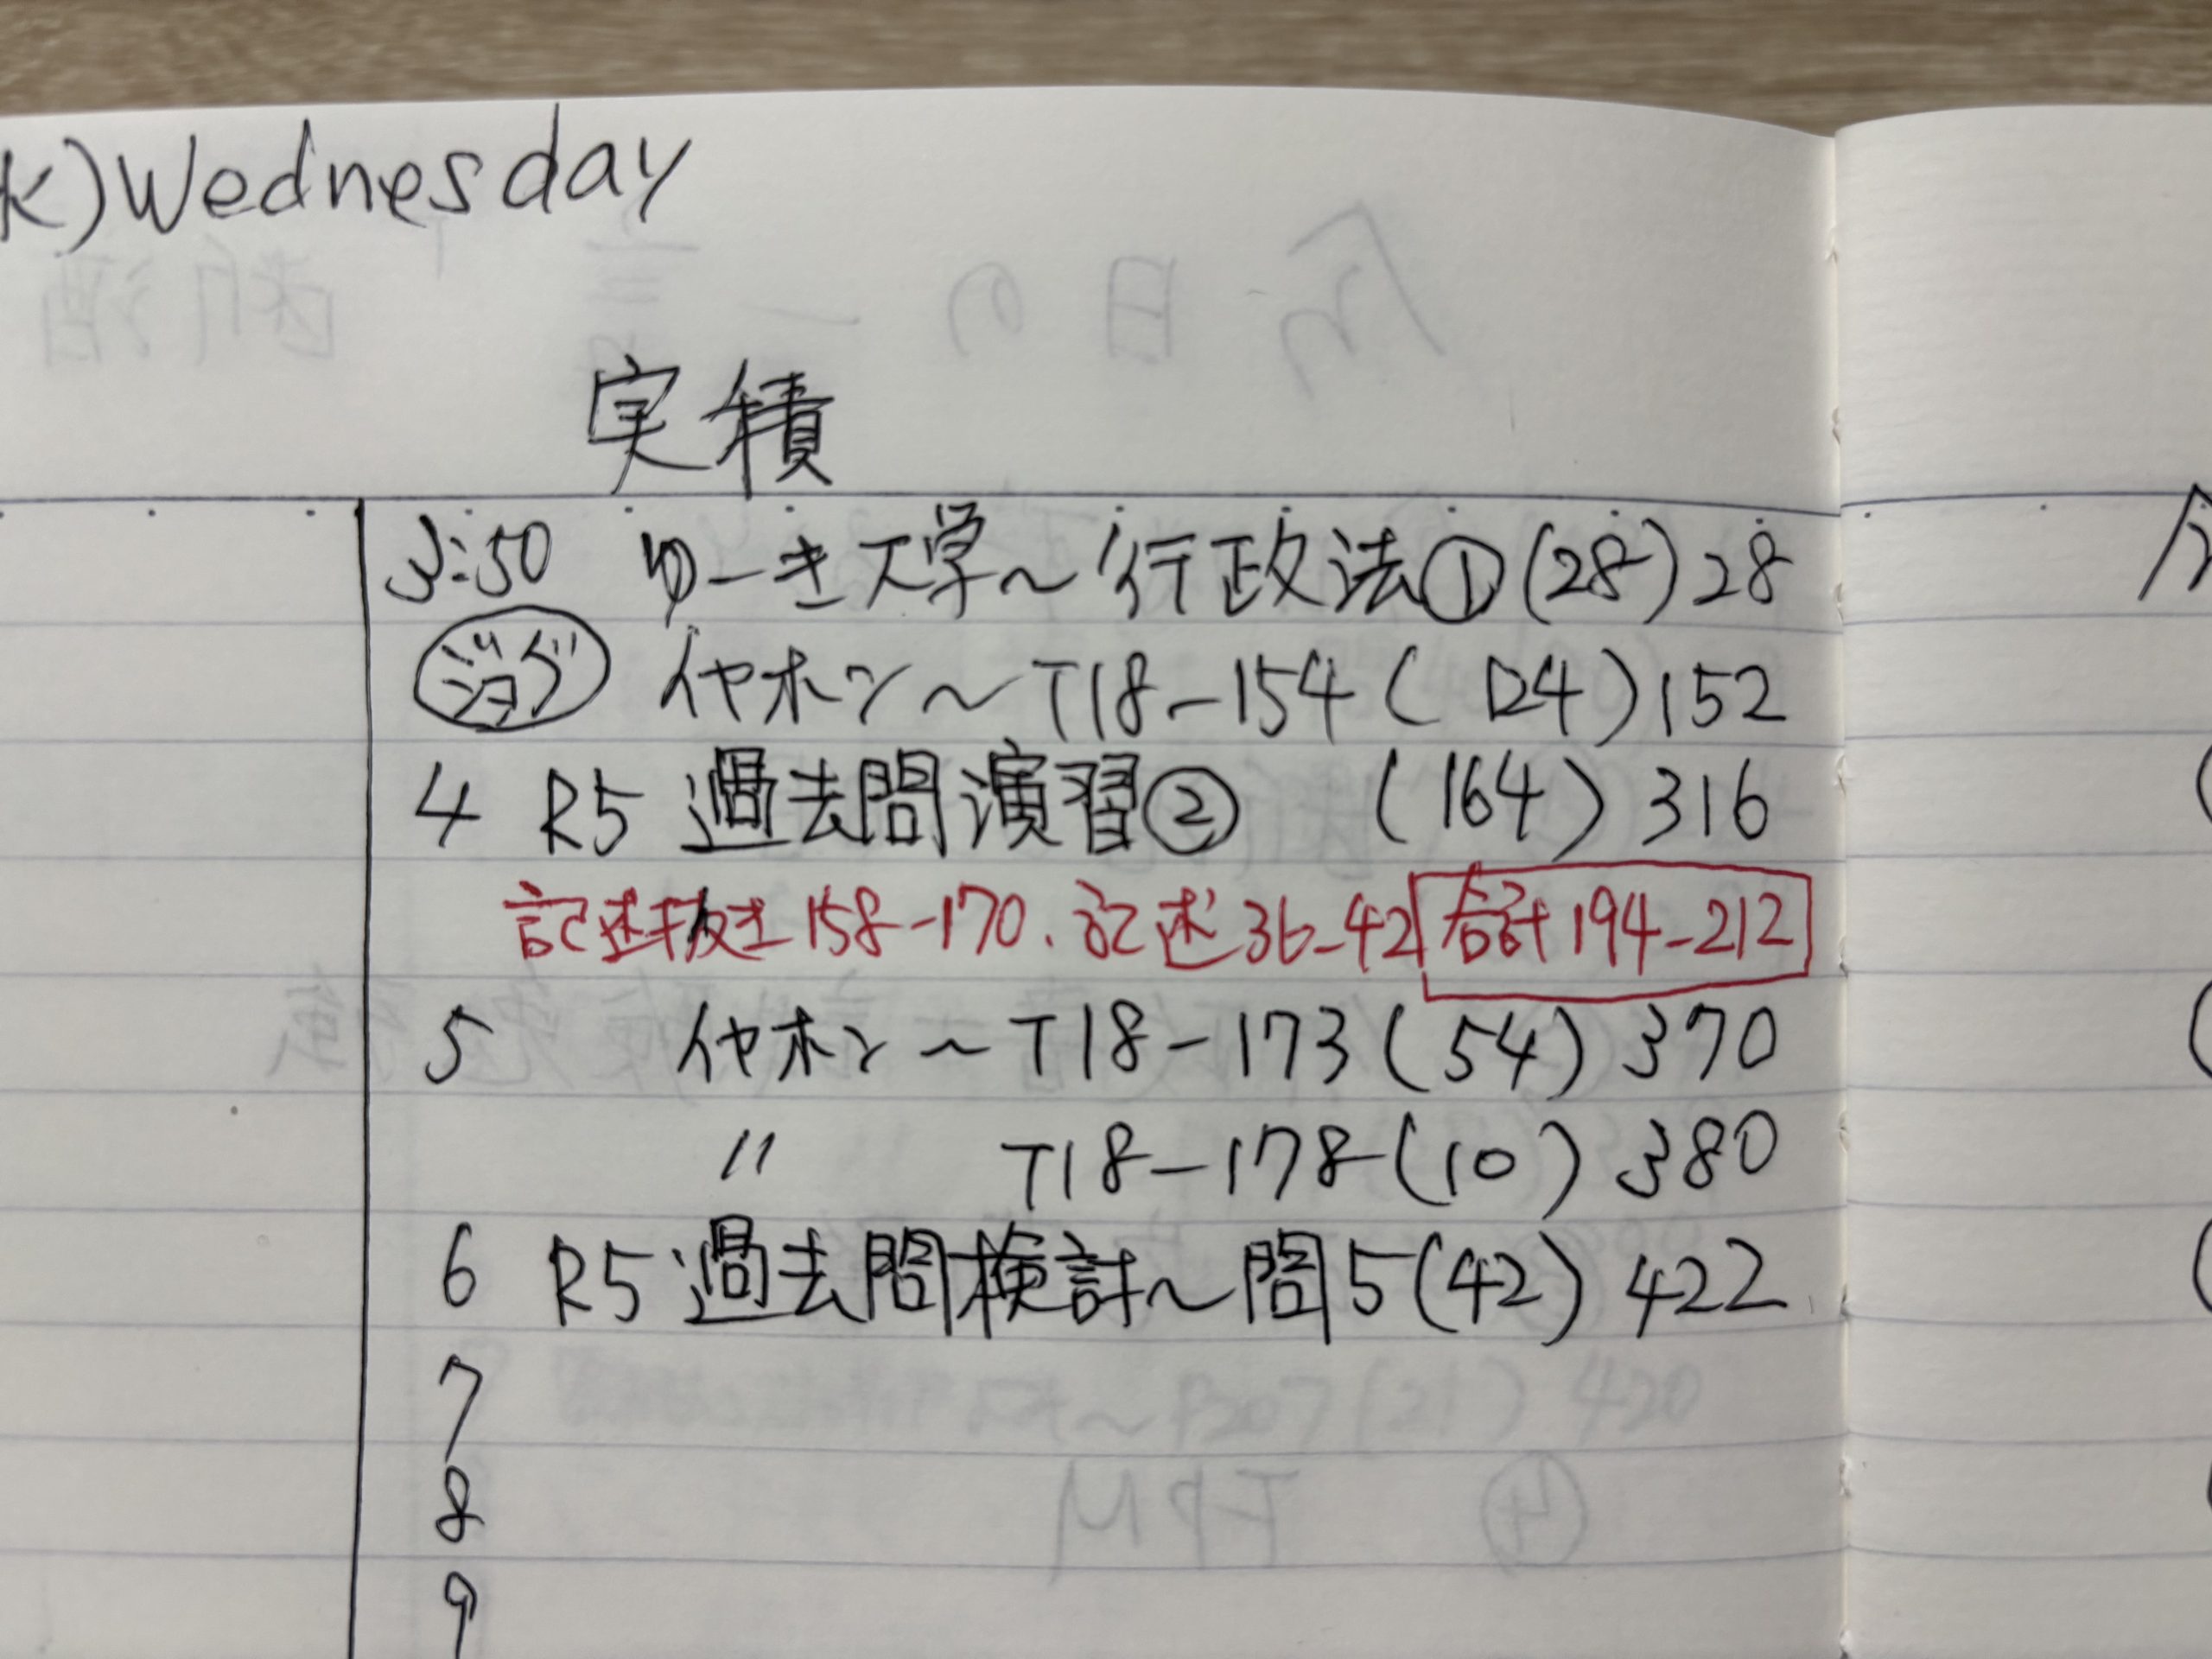 水)Wednesday
実積
3:50 ゆーき大学〜行政法①(28)28
ジョグ イヤホン〜T18-154(124)152
4 R5 過去問演習② (164)316
記述抜き158-170.記述36-42 合計194-212
5 イヤホン〜T18-173(54)370
〃 T18-178(10)380
6 R5過去問検討〜問5(42)422
7
8
9